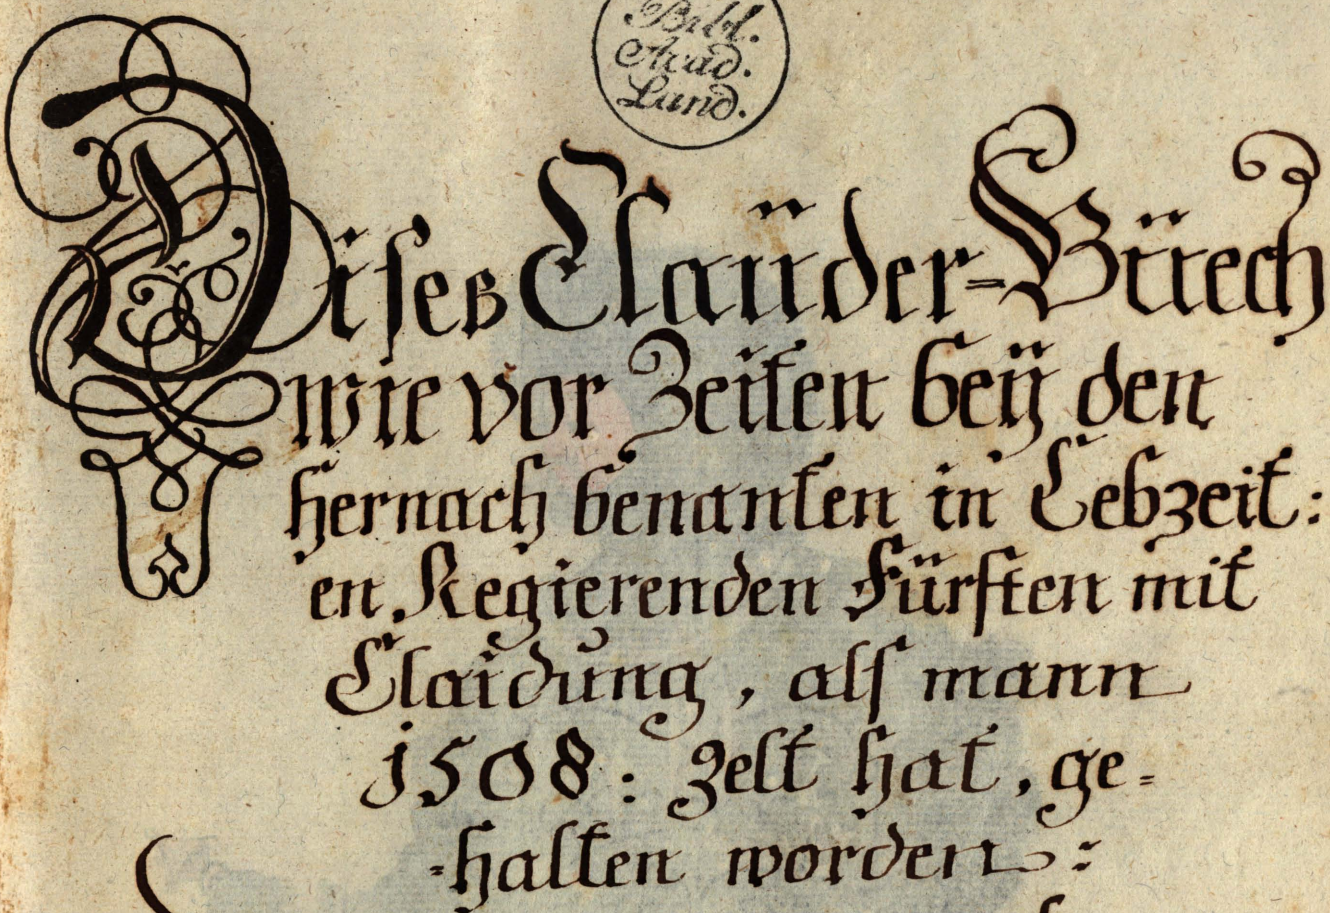 Bibl.
Acad.
Land.
Diseß Claüder-Büech
wie vor Zeiten beÿ den
hernach benanten in Lebzeit:
en Regierenden Fürsten mit
Claidŭng, alſ mann
1508: zelt hat, ge=
=halten worden: